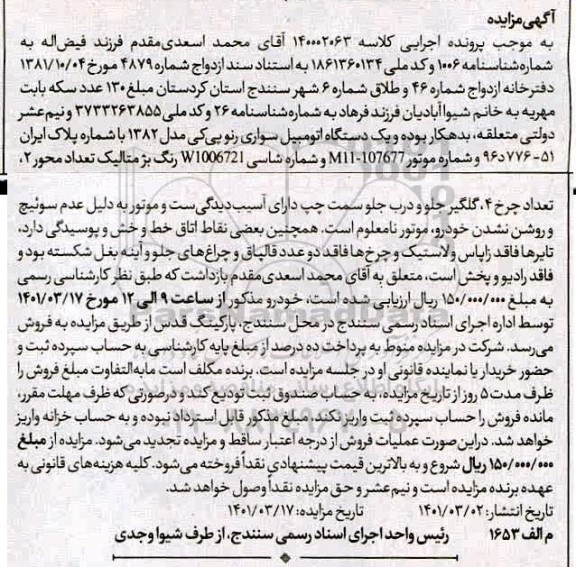 آگهی مزایده
به موجب پرونده اجرایی کلاسه ۱۴۰۰۰۲۰۶۳ آقای محمد اسعدی‌مقدم فرزند فیض‌اله به
شماره شناسنامه ۱۰۰۶ و کد ملی ۱۸۶۱۳۶۰۱۳۴ به استناد سند ازدواج شماره ۴۸۷۹ مورخ ۱۳۸۱/۱۰/۰۴
دفترخانه ازدواج شماره ۴۶ و طلاق شماره ۶ شهر سنندج استان کردستان مبلغ ۱۳۰ عدد سکه بابت
مهریه به خانم شیوا آبادیان فرزند فرهاد به شماره شناسنامه ۲۶ و کد ملی ۳۷۳۳۲۶۳۸۵۵ و نیم عشر
دولتی متعلقه، بدهکار بوده و یک دستگاه اتومبیل سواری رنو پی‌کی مدل ۱۳۸۲ با شماره پلاک ایران
۵۱-۷۷۶د۹۶ و شماره موتور M11-107677 و شماره شاسی W1006721 رنگ بژ متالیک تعداد محور ۲،
تعداد چرخ ۴، گلگیر جلو و درب جلو سمت چپ دارای آسیب‌دیدگی‌ست و موتور به دلیل عدم سوئیچ
و روشن نشدن خودرو، موتور نامعلوم است. همچنین بعضی نقاط اتاق خط و خش و پوسیدگی دارد،
تایرها فاقد زاپاس و لاستیک و چرخ‌ها فاقد دو عدد قالپاق و چراغ‌های جلو و آینه بغل شکسته بود و
فاقد رادیو و پخش است، متعلق به آقای محمد اسعدی‌مقدم بازداشت که طبق نظر کارشناسی رسمی
به مبلغ ۱۵۰/۰۰۰/۰۰۰ ریال ارزیابی شده است، خودرو مذکور از ساعت ۹ الی ۱۲ مورخ ۱۴۰۱/۰۳/۱۷
توسط اداره اجرای اسناد رسمی سنندج در محل سنندج، پارکینگ قدس از طریق مزایده به فروش
می‌رسد. شرکت در مزایده منوط به پرداخت ده درصد از مبلغ پایه کارشناسی به حساب سپرده ثبت و
حضور خریدار یا نماینده قانونی او در جلسه مزایده است. برنده مکلف است مابه‌التفاوت مبلغ فروش را
ظرف مدت ۵ روز از تاریخ مزایده، به حساب صندوق ثبت تودیع کند و درصورتی‌که ظرف مهلت مقرر،
مانده فروش را حساب سپرده ثبت واریز نکند، مبلغ مذکور قابل استرداد نبوده و به حساب خزانه واریز
خواهد شد. دراین صورت عملیات فروش از درجه اعتبار ساقط و مزایده تجدید می‌شود. مزایده از مبلغ
۱۵۰/۰۰۰/۰۰۰ ریال شروع و به بالاترین قیمت پیشنهادی نقداً فروخته می‌شود. کلیه هزینه‌های قانونی به
عهده برنده مزایده است و نیم عشر و حق مزایده نقداً وصول خواهد شد.
تاریخ انتشار: ۱۴۰۱/۰۳/۰۲ تاریخ مزایده: ۱۴۰۱/۰۳/۱۷
م الف ۱۶۵۳ رئیس واحد اجرای اسناد رسمی سنندج، از طرف شیوا وجدی